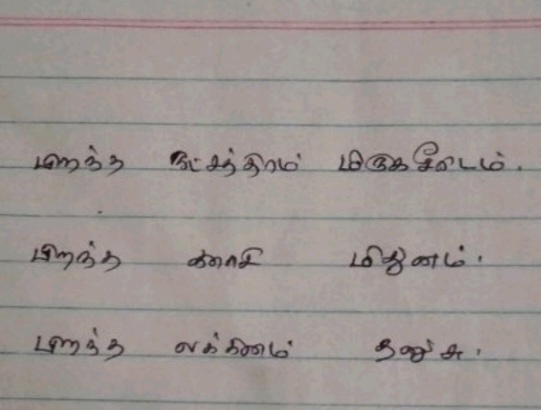 பிறந்த நட்சத்திரம் மிருகசீடைம்.
பிறந்த ராசி மிதுனம்.
பிறந்த லக்கினம் தனுசு.